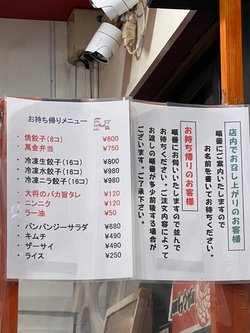 お持ち帰りメニュー
焼餃子(8コ) ¥600
萬金弁当 ¥750
冷凍生餃子(16コ) ¥800
冷凍水餃子(16コ) ¥980
冷凍ニラ餃子(16コ) ¥980
大将のバカ旨タレ ¥120
ニンニク ¥120
ラー油 ¥50
バンバンジーサラダ ¥680
キムチ ¥490
ザーサイ ¥490
ライス ¥250
店内でお召し上がりのお客様
順番にご案内いたしますので
お名前を書いてお待ちください。
お持ち帰りのお客様
順番にお伺いいたしますので並んで
お待ちください。ご注文内容によって
お渡しの順番が多少前後する場合が
ございます。ご了承下さい。